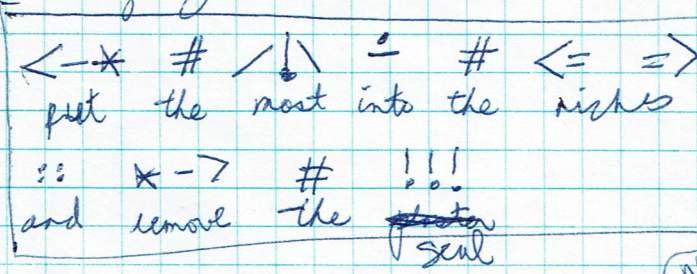 <-* # /!\ ∸ # <= =>
put the most into the riches
:: *-> # !!!
and remove the
seal